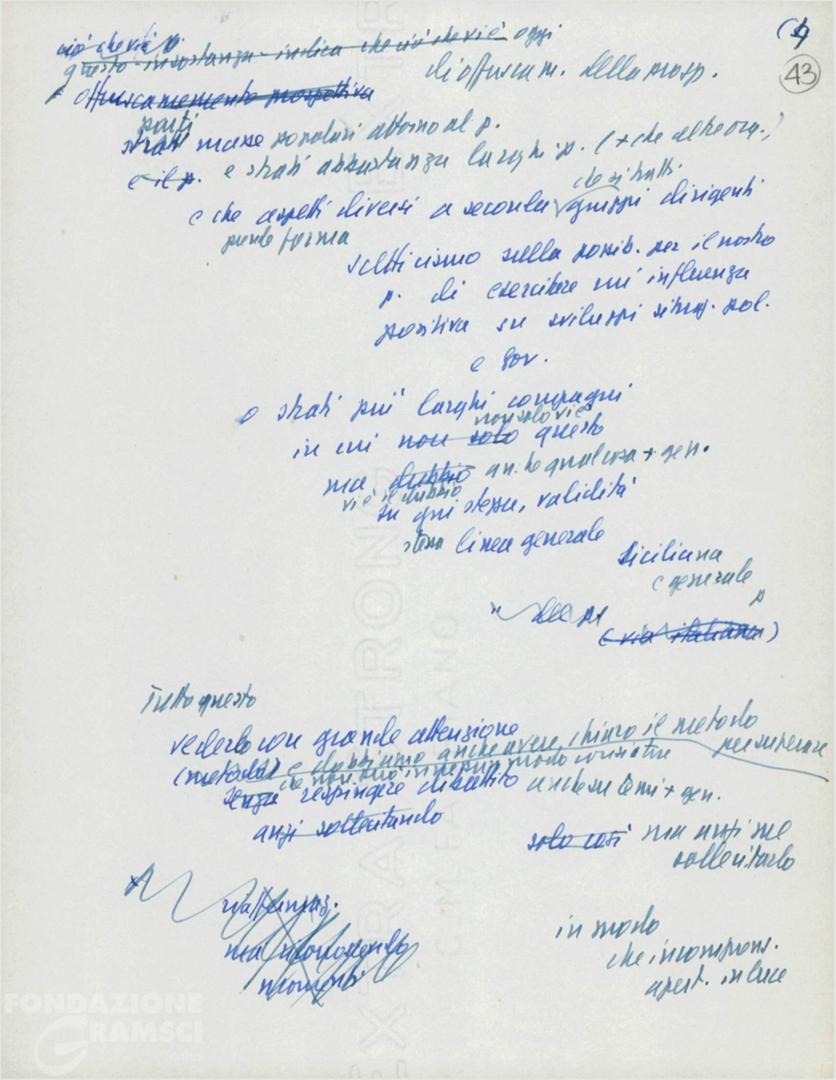 9
43
ciò che vi è
questo in sostanza indica che ciò che vi è oggi
di offuscam. della prosp.
offuscamento prospettiva
parti
strati masse popolari attorno al p.
e il p. e strati abbastanza larghi p. (+ che altre org.)
che si tratti
e che aspetti diversi a seconda gruppi dirigenti
prende forma
scetticismo sulla possib. per il nostro
p. di esercitare un' influenza
positiva su sviluppi situaz. pol.
e gov.
o strati più larghi compagni
non solo vi è
in cui non solo questo
ma dubbio anche qualcosa + gen.
vi è il dubbio
su giustezza, validità
stessa linea generale
siciliana
e generale
p
del p.
(via italiana)
Tutto questo
vederlo con grande attenzione
(metodo) e dobbiamo anche avere chiaro il metodo per superare
che non può in nessun modo consistere
senza respingere dibattito anche su temi + gen.
anzi sollecitando
solo così ma anzi nel
sollecitarlo
riaffermaz.
ma riconoscendo
momenti
in modo
che incomprens.
apert. in luce
FONDAZIONE
GRAMSCI
EXTRA STRONG